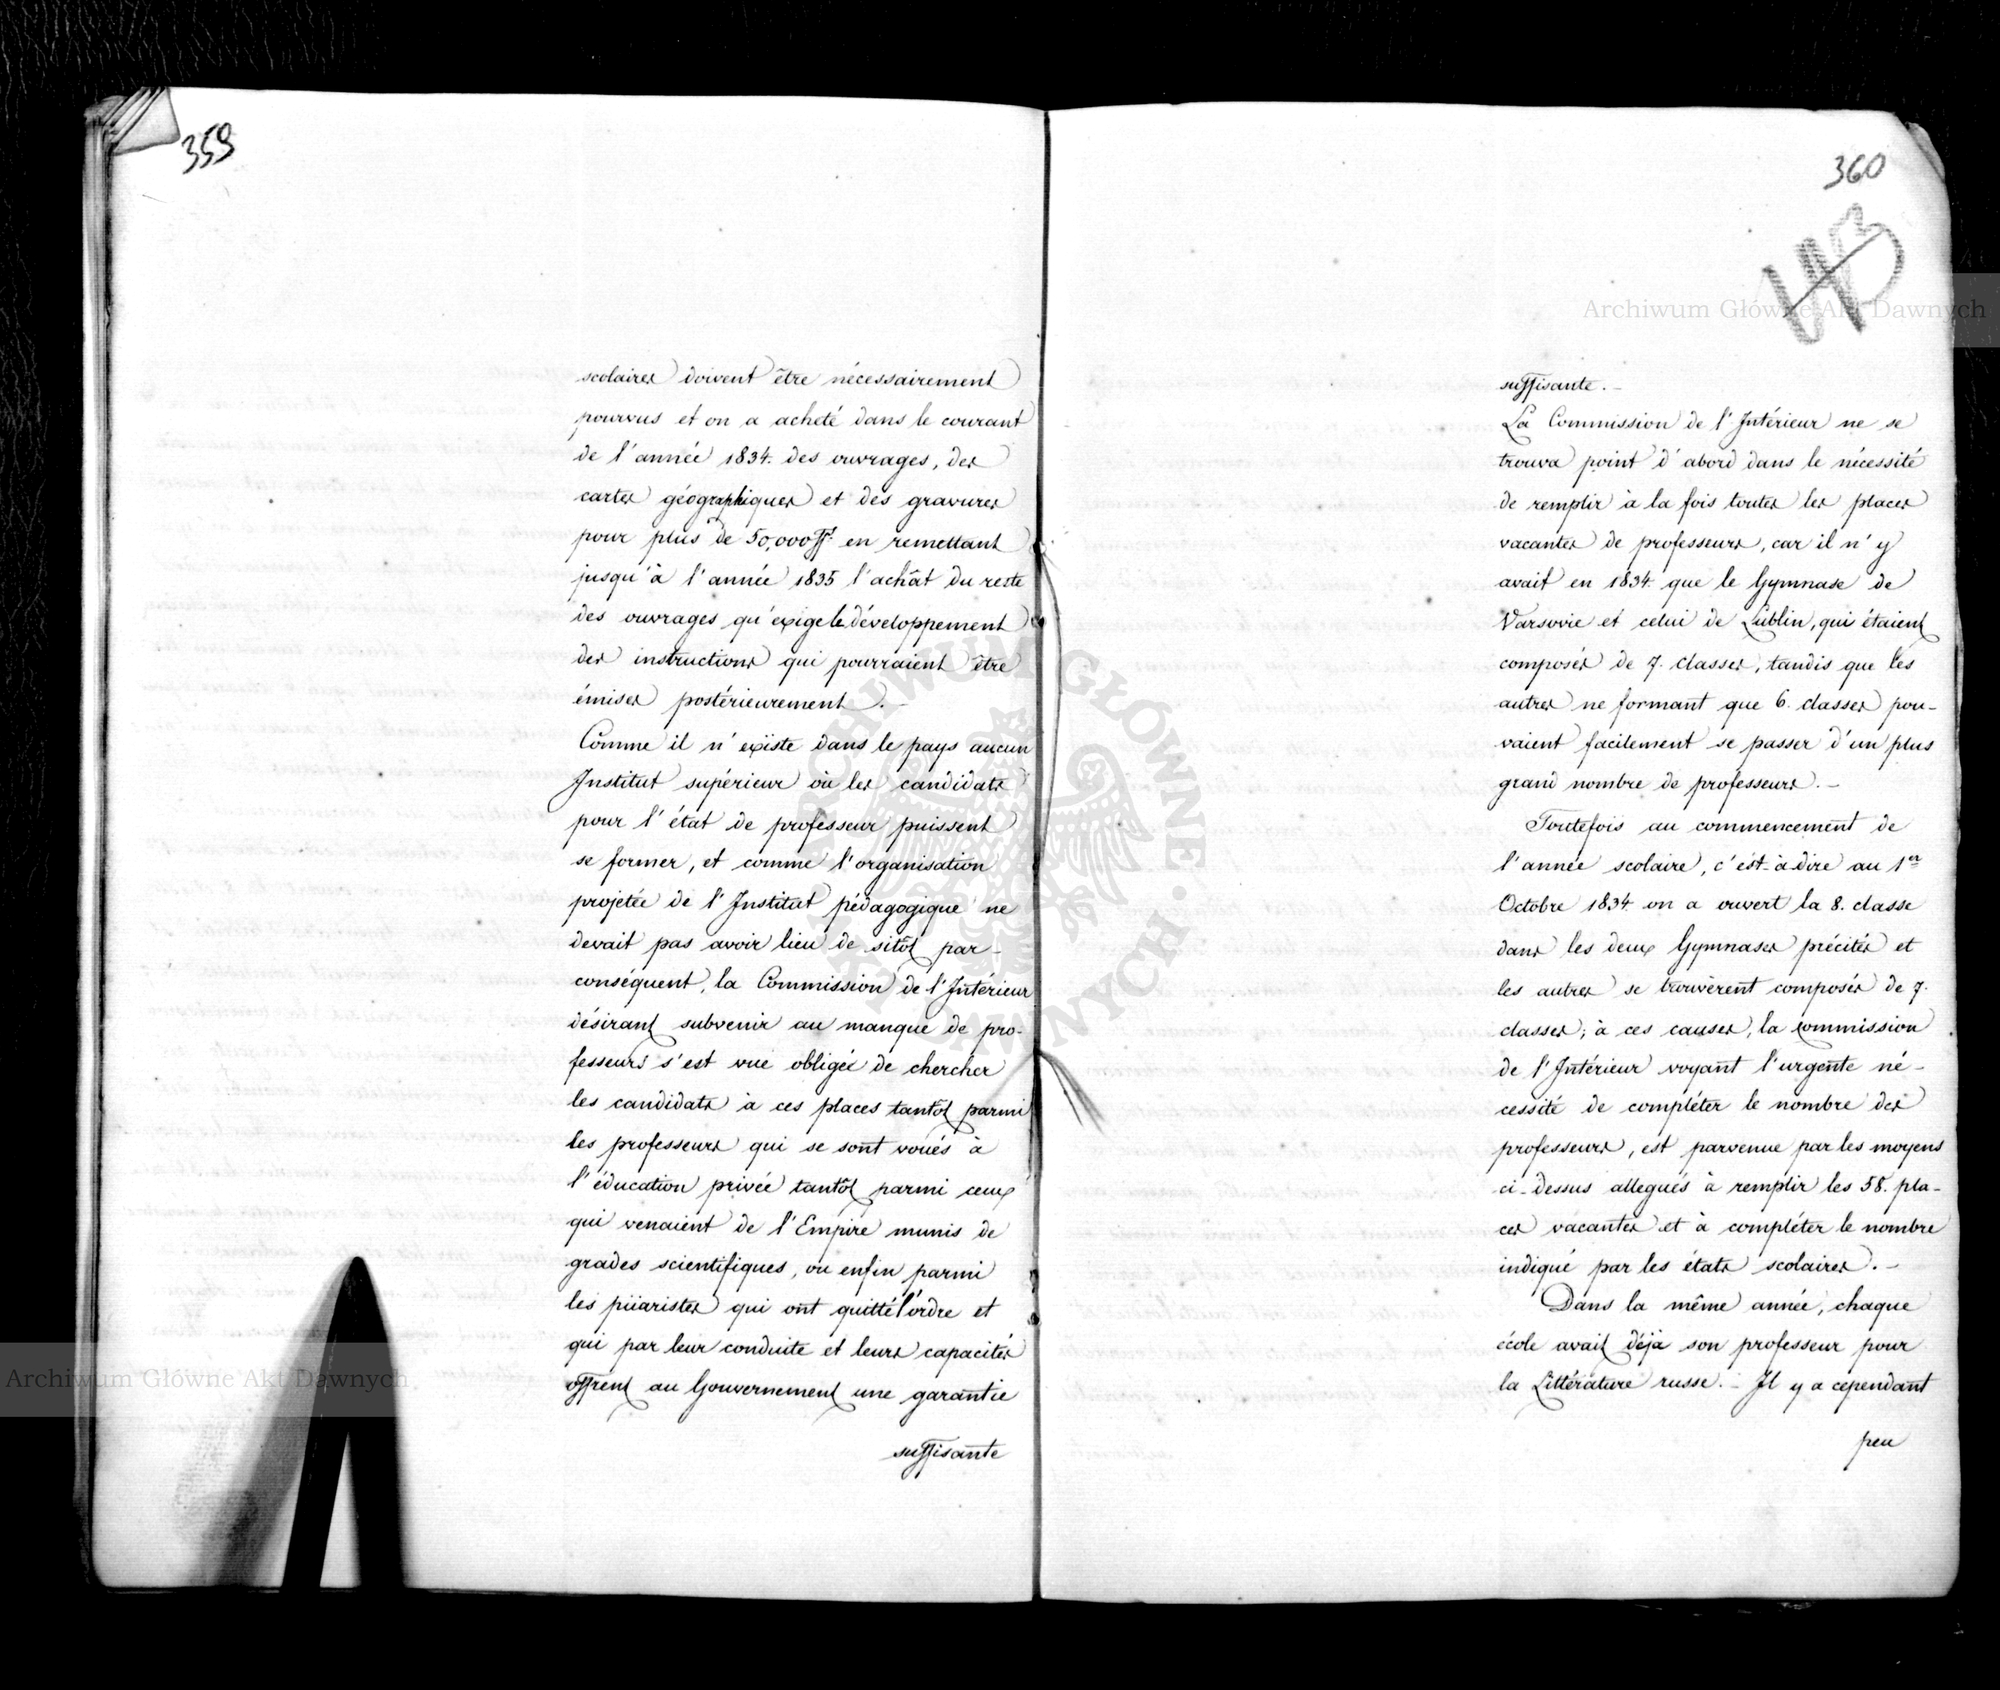 359
scolaires doivent être nécessairement
pourvus et on a acheté dans le courant
de l'année 1834. des ouvrages, des
cartes géographiques et des gravures
pour plus de 50,000 ff. en remettant
jusqu'à l'année 1835 l'achât du reste
des ouvrages qu'exige le développement
des instructions qui pourraient être
émises postérieurement.-
Comme il n'existe dans le pays aucun
Institut supérieur où les candidats
pour l'état de professeur puissent
se former, et comme l'organisation
projetée de l'Institut pédagogique ne
devait pas avoir lieu de sitôt par-
conséquent, la Commission de l'Intérieur
désirant subvenir au manque de pro-
fesseurs s'est vue obligée de chercher
les candidats à ces places tantôt parmi
les professeurs qui se sont voués à
l'éducation privée tantôt parmi ceux
qui venaient de l'Empire munis de
grades scientifiques, ou enfin parmi
les piiaristes qui ont quitté l'ordre et
qui par leur conduite et leurs capacités
offrent au Gouvernement une garantie
suffisante
360
suffisante.-
La Commission de l'Intérieur ne se
trouva point d'abord dans le nécessité
de remplir à la fois toutes les places
vacantes de professeurs, car il n'y
avait en 1834. que le Gymnase de
Varsovie et celui de Lublin, qui étaient
composés de 7. classes, tandis que les
autres ne formant que 6. classes pou-
vaient facilement se passer d'un plus
grand nombre de professeurs.-
Toutefois au commencement de
l'année scolaire, c'est-à-dire au 1er
Octobre 1834. on a ouvert la 8. classe
dans les deux Gymnases précités et
les autres se trouvèrent composés de 7.
classes; à ces causes, la commission
de l'Intérieur voyant l'urgente né-
cessité de compléter le nombre des
professeurs, est parvenue par les moyens
ci-dessus allegués à remplir les 58. pla-
ces vacantes et à compléter le nombre
indiqué par les états scolaires.-
Dans la même année, chaque
école avait déjà son professeur pour
la Littérature russe.- Il y a cependant
peu
Archiwum Główne Akt Dawnych
Archiwum Główne Akt Dawnych
ARCHIWUM GŁÓWNE AKT DAWNYCH